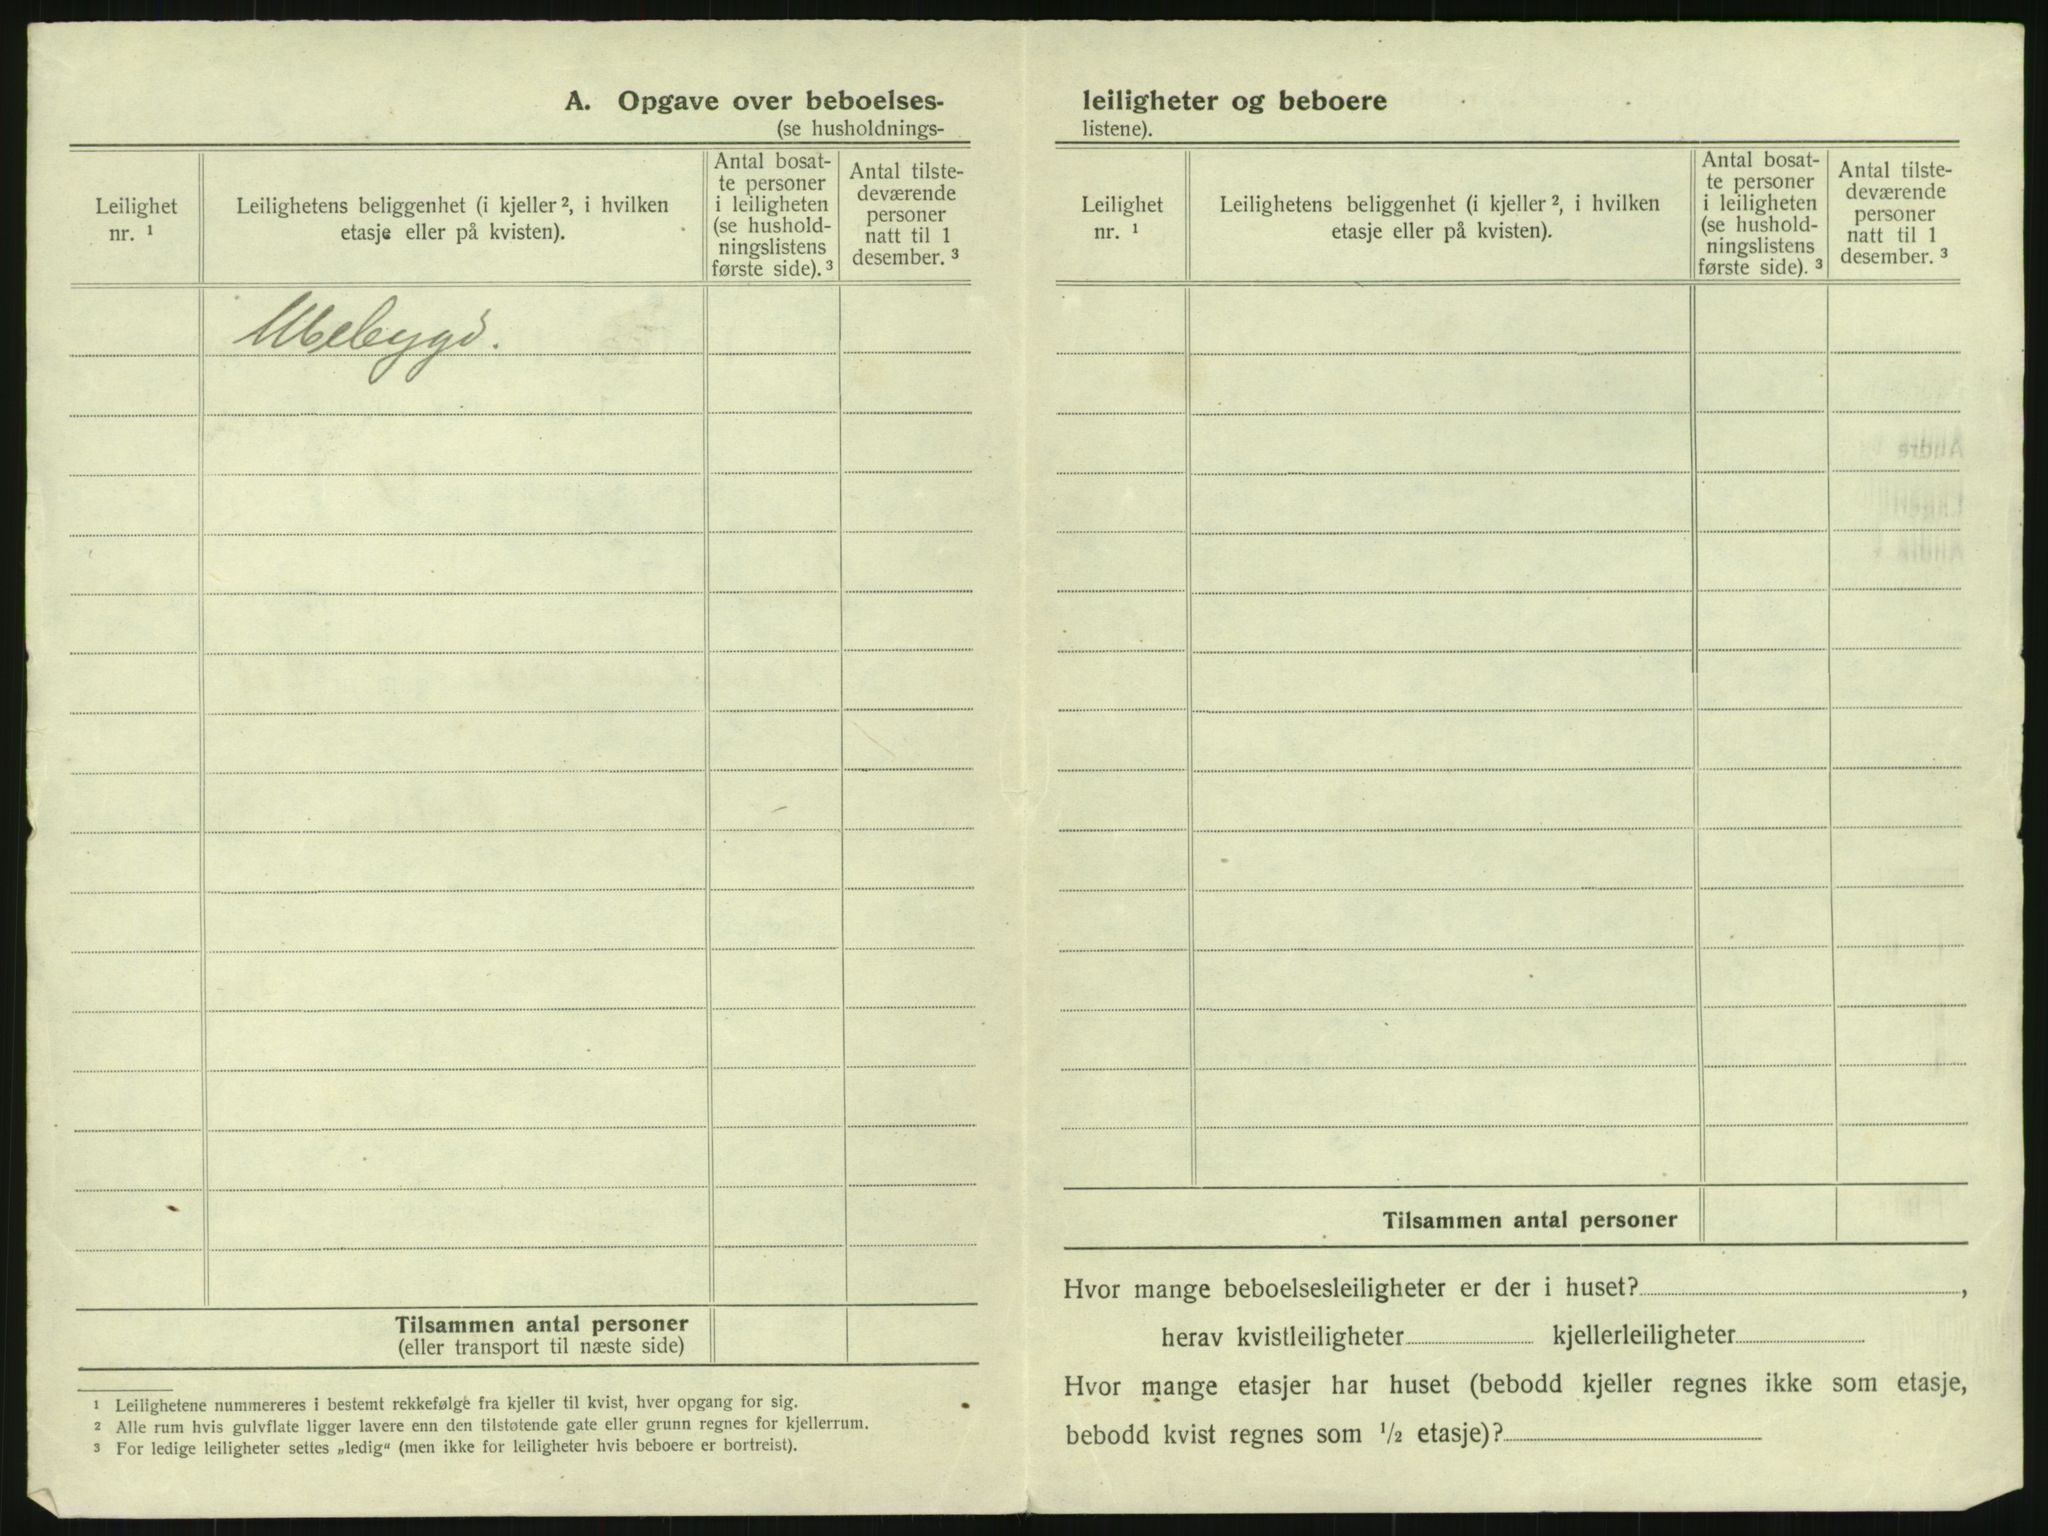 A. Opgave over beboelses-
(se husholdnings-
Leilighet
nr. ¹
Leilighetens beliggenhet (i kjeller ², i hvilken
etasje eller på kvisten).
Antal bosat-
te personer
i leiligheten
(se hushold-
ningslistens
første side). ³
Antal tilste-
deværende
personer
natt til 1
desember. ³
Ubebygd.
Tilsammen antal personer
(eller transport til næste side)
¹ Leilighetene nummereres i bestemt rekkefølge fra kjeller til kvist, hver opgang for sig.
² Alle rum hvis gulvflate ligger lavere enn den tilstøtende gate eller grunn regnes for kjellerrum.
³ For ledige leiligheter settes „ledig“ (men ikke for leiligheter hvis beboere er bortreist).
leiligheter og beboere
listene).
Leilighet
nr. ¹
Leilighetens beliggenhet (i kjeller ², i hvilken
etasje eller på kvisten).
Antal bosat-
te personer
i leiligheten
(se hushold-
ningslistens
første side). ³
Antal tilste-
deværende
personer
natt til 1
desember. ³
Tilsammen antal personer
Hvor mange beboelsesleiligheter er der i huset? ,
herav kvistleiligheter kjellerleiligheter
Hvor mange etasjer har huset (bebodd kjeller regnes ikke som etasje,
bebodd kvist regnes som ½ etasje)?